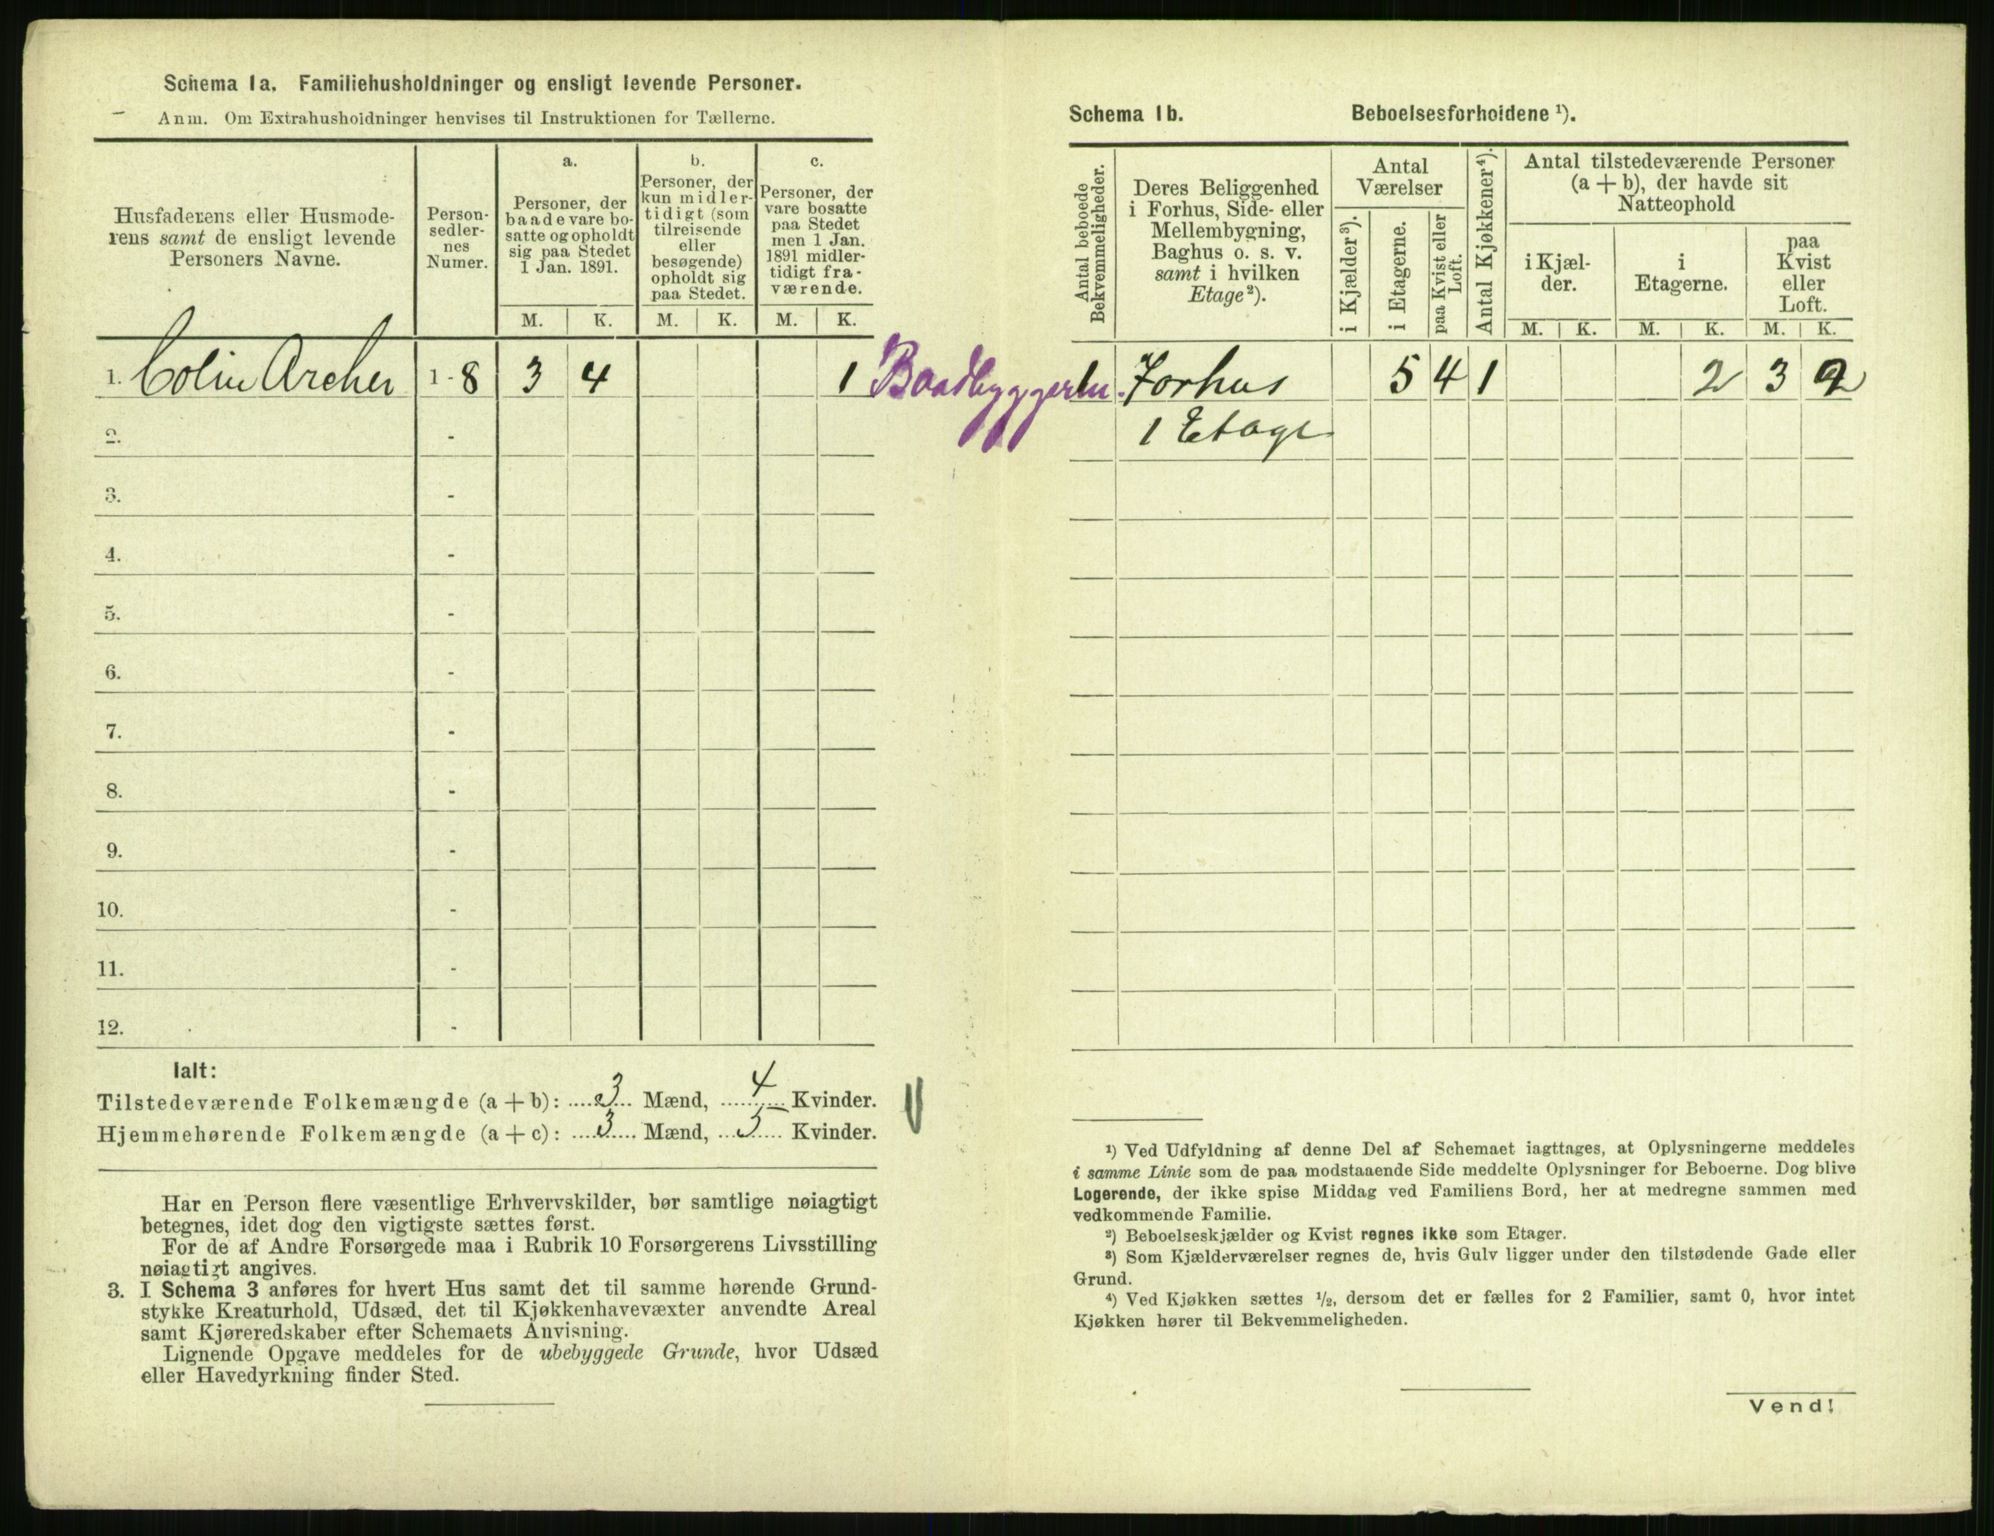 Schema 1a. Familiehusholdninger og ensligt levende Personer.
Anm. Om Extrahusholdninger henvises til Instruktionen for Tællerne.
Husfaderens eller Husmode-
rens samt de ensligt levende
Personers Navne.
Person-
sedler-
nes
Numer.
a.
Personer, der
baade vare bo-
satte og opholdt
sig paa Stedet
1 Jan. 1891.
b.
Personer, der
kun midler-
tidigt (som
tilreisende
eller
besøgende)
opholdt sig
paa Stedet.
c.
Personer, der
vare bosatte
paa Stedet
men 1 Jan.
1891 midler-
tidigt fra-
værende.
M. K. M. K. M. K.
1. Colin Archer 1 - 8 3 4 1 Baadbyggeri
2. -
3. -
4. -
5. -
6. -
7. -
8. -
9. -
10. -
11. -
12. -
Ialt:
Tilstedeværende Folkemængde (a + b): 3 Mænd, 4 Kvinder.
Hjemmehørende Folkemængde (a + c): 3 Mænd, 5 Kvinder.
Har en Person flere væsentlige Erhvervskilder, bør samtlige nøiagtigt
betegnes, idet dog den vigtigste sættes først.
For de af Andre Forsørgede maa i Rubrik 10 Forsørgerens Livsstilling
nøiagtigt angives.
3. I Schema 3 anføres for hvert Hus samt det til samme hørende Grund-
stykke Kreaturhold, Udsæd, det til Kjøkkenhavevæxter anvendte Areal
samt Kjøreredskaber efter Schemaets Anvisning.
Lignende Opgave meddeles for de ubebyggede Grunde, hvor Udsæd
eller Havedyrkning finder Sted.
Schema 1b. Beboelsesforholdene ¹).
Antal beboede
Bekvemmeligheder.
Deres Beliggenhed
i Forhus, Side- eller
Mellembygning,
Baghus o. s. v.
samt i hvilken
Etage ²).
Antal
Værelser
i Kjælder ³).
i Etagerne.
paa Kvist eller
Loft.
Antal Kjøkkener ⁴).
Antal tilstedeværende Personer
(a + b), der havde sit
Natteophold
i Kjæl-
der.
i
Etagerne.
paa
Kvist
eller
Loft.
M. K. M. K. M. K.
1 Forhus 5 4 1 2 3 2
1 Etage
¹) Ved Udfyldning af denne Del af Schemaet iagttages, at Oplysningerne meddeles
i samme Linie som de paa modstaaende Side meddelte Oplysninger for Beboerne. Dog blive
Logerende, der ikke spise Middag ved Familiens Bord, her at medregne sammen med
vedkommende Familie.
²) Beboelseskjælder og Kvist regnes ikke som Etager.
³) Som Kjælderværelser regnes de, hvis Gulv ligger under den tilstødende Gade eller
Grund.
⁴) Ved Kjøkken sættes ½, dersom det er fælles for 2 Familier, samt 0, hvor intet
Kjøkken hører til Bekvemmeligheden.
Vend!